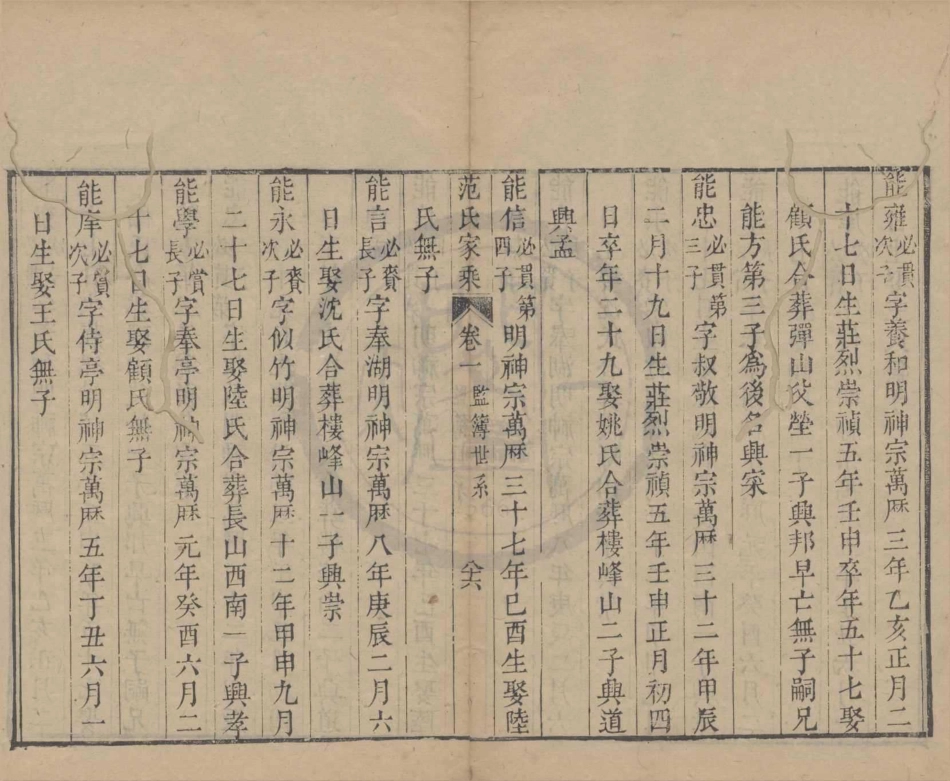 能雍必貫次子字養和明神宗萬厯三年乙亥正月二
十七日生莊烈崇禎五年壬申卒年五十七娶
顧氏合葬彈山父塋一子興邦早亡無子嗣兄
能方第三子為後名興宋
能忠必貫第三子字叔敬明神宗萬厯三十二年甲辰
二月十九日生莊烈崇禎五年壬申正月初四
日卒年二十九娶姚氏合葬樓峰山二子興道
興孟
能信必貫第四子明神宗萬厯三十七年己酉生娶陸
范氏家乘 卷一 監簿世系 六
氏無子
能言必賚長子字奉湖明神宗萬厯八年庚辰二月六
日生娶沈氏合葬樓峰山一子興崇
能永必賚次子字似竹明神宗萬厯十二年甲申九月
二十七日生娶陸氏合葬長山西南一子興孝
能學必賞長子字奉亭明神宗萬厯元年癸酉六月二
十七日生娶顧氏無子
能庠必賞次子字侍亭明神宗萬厯五年丁丑六月一
日生娶王氏無子